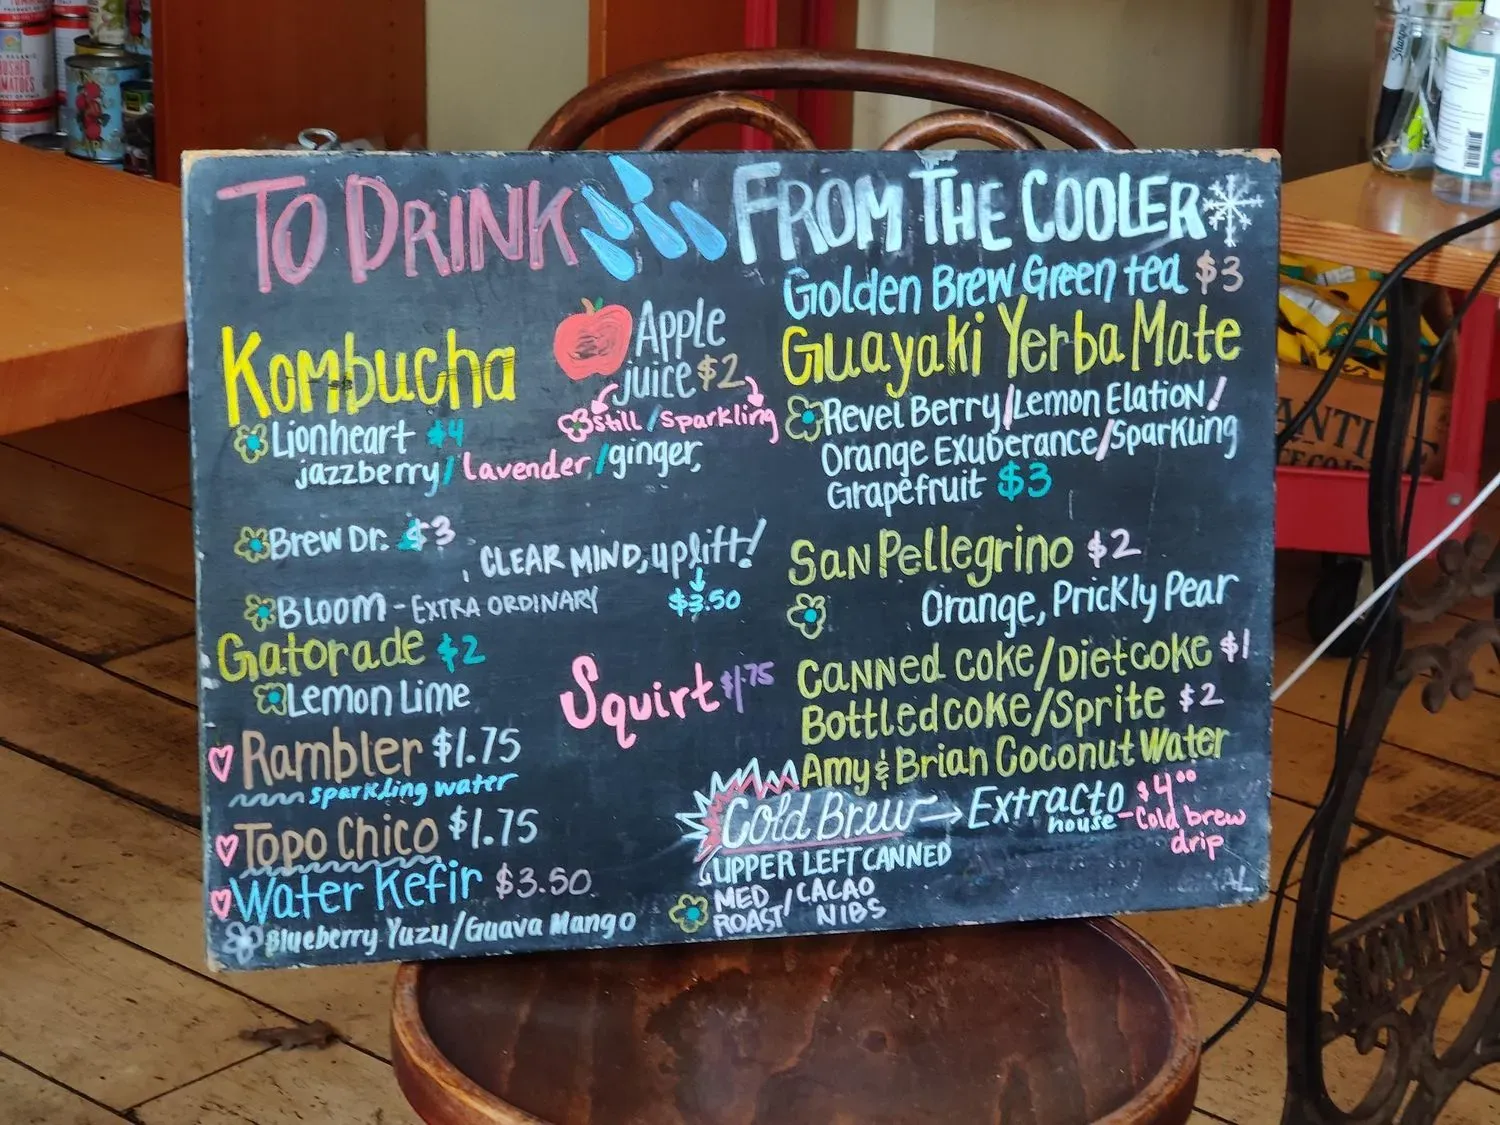 To Drink
From The Cooler
Kombucha
Lionheart $4
jazzberry/lavender/ginger,
Apple
juice $2
still/sparkling
Brew Dr. $3
CLEAR MIND, uplift!
$3.50
BLOOM - EXTRA ORDINARY
Gatorade $2
Lemon Lime
Squirt $1.75
Rambler $1.75
sparkling water
Topo Chico $1.75
Water Kefir $3.50
Blueberry Yuzu/Guava Mango
Golden Brew Green tea $3
Guayaki Yerba Mate
Revel Berry/Lemon Elation/
Orange Exuberance/Sparkling
Grapefruit $3
San Pellegrino $2
Orange, Prickly Pear
Canned coke/Diet coke $1
Bottled coke/Sprite $2
Amy & Brian Coconut Water
Cold Brew → Extracto $4.00
house - Cold brew
drip
UPPER LEFT CANNED
MED / CACAO
ROAST NIBS
AL
Sharpie